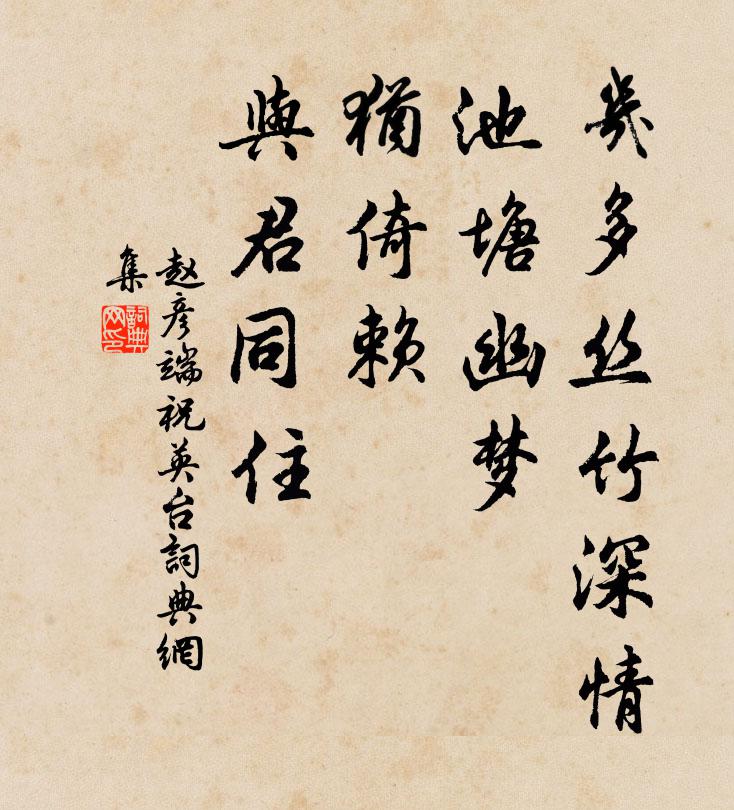 幾多丝竹深情
池塘幽梦
猶倚赖
與君同住
赵彦端祝英台詞典網
集
詞典
网印